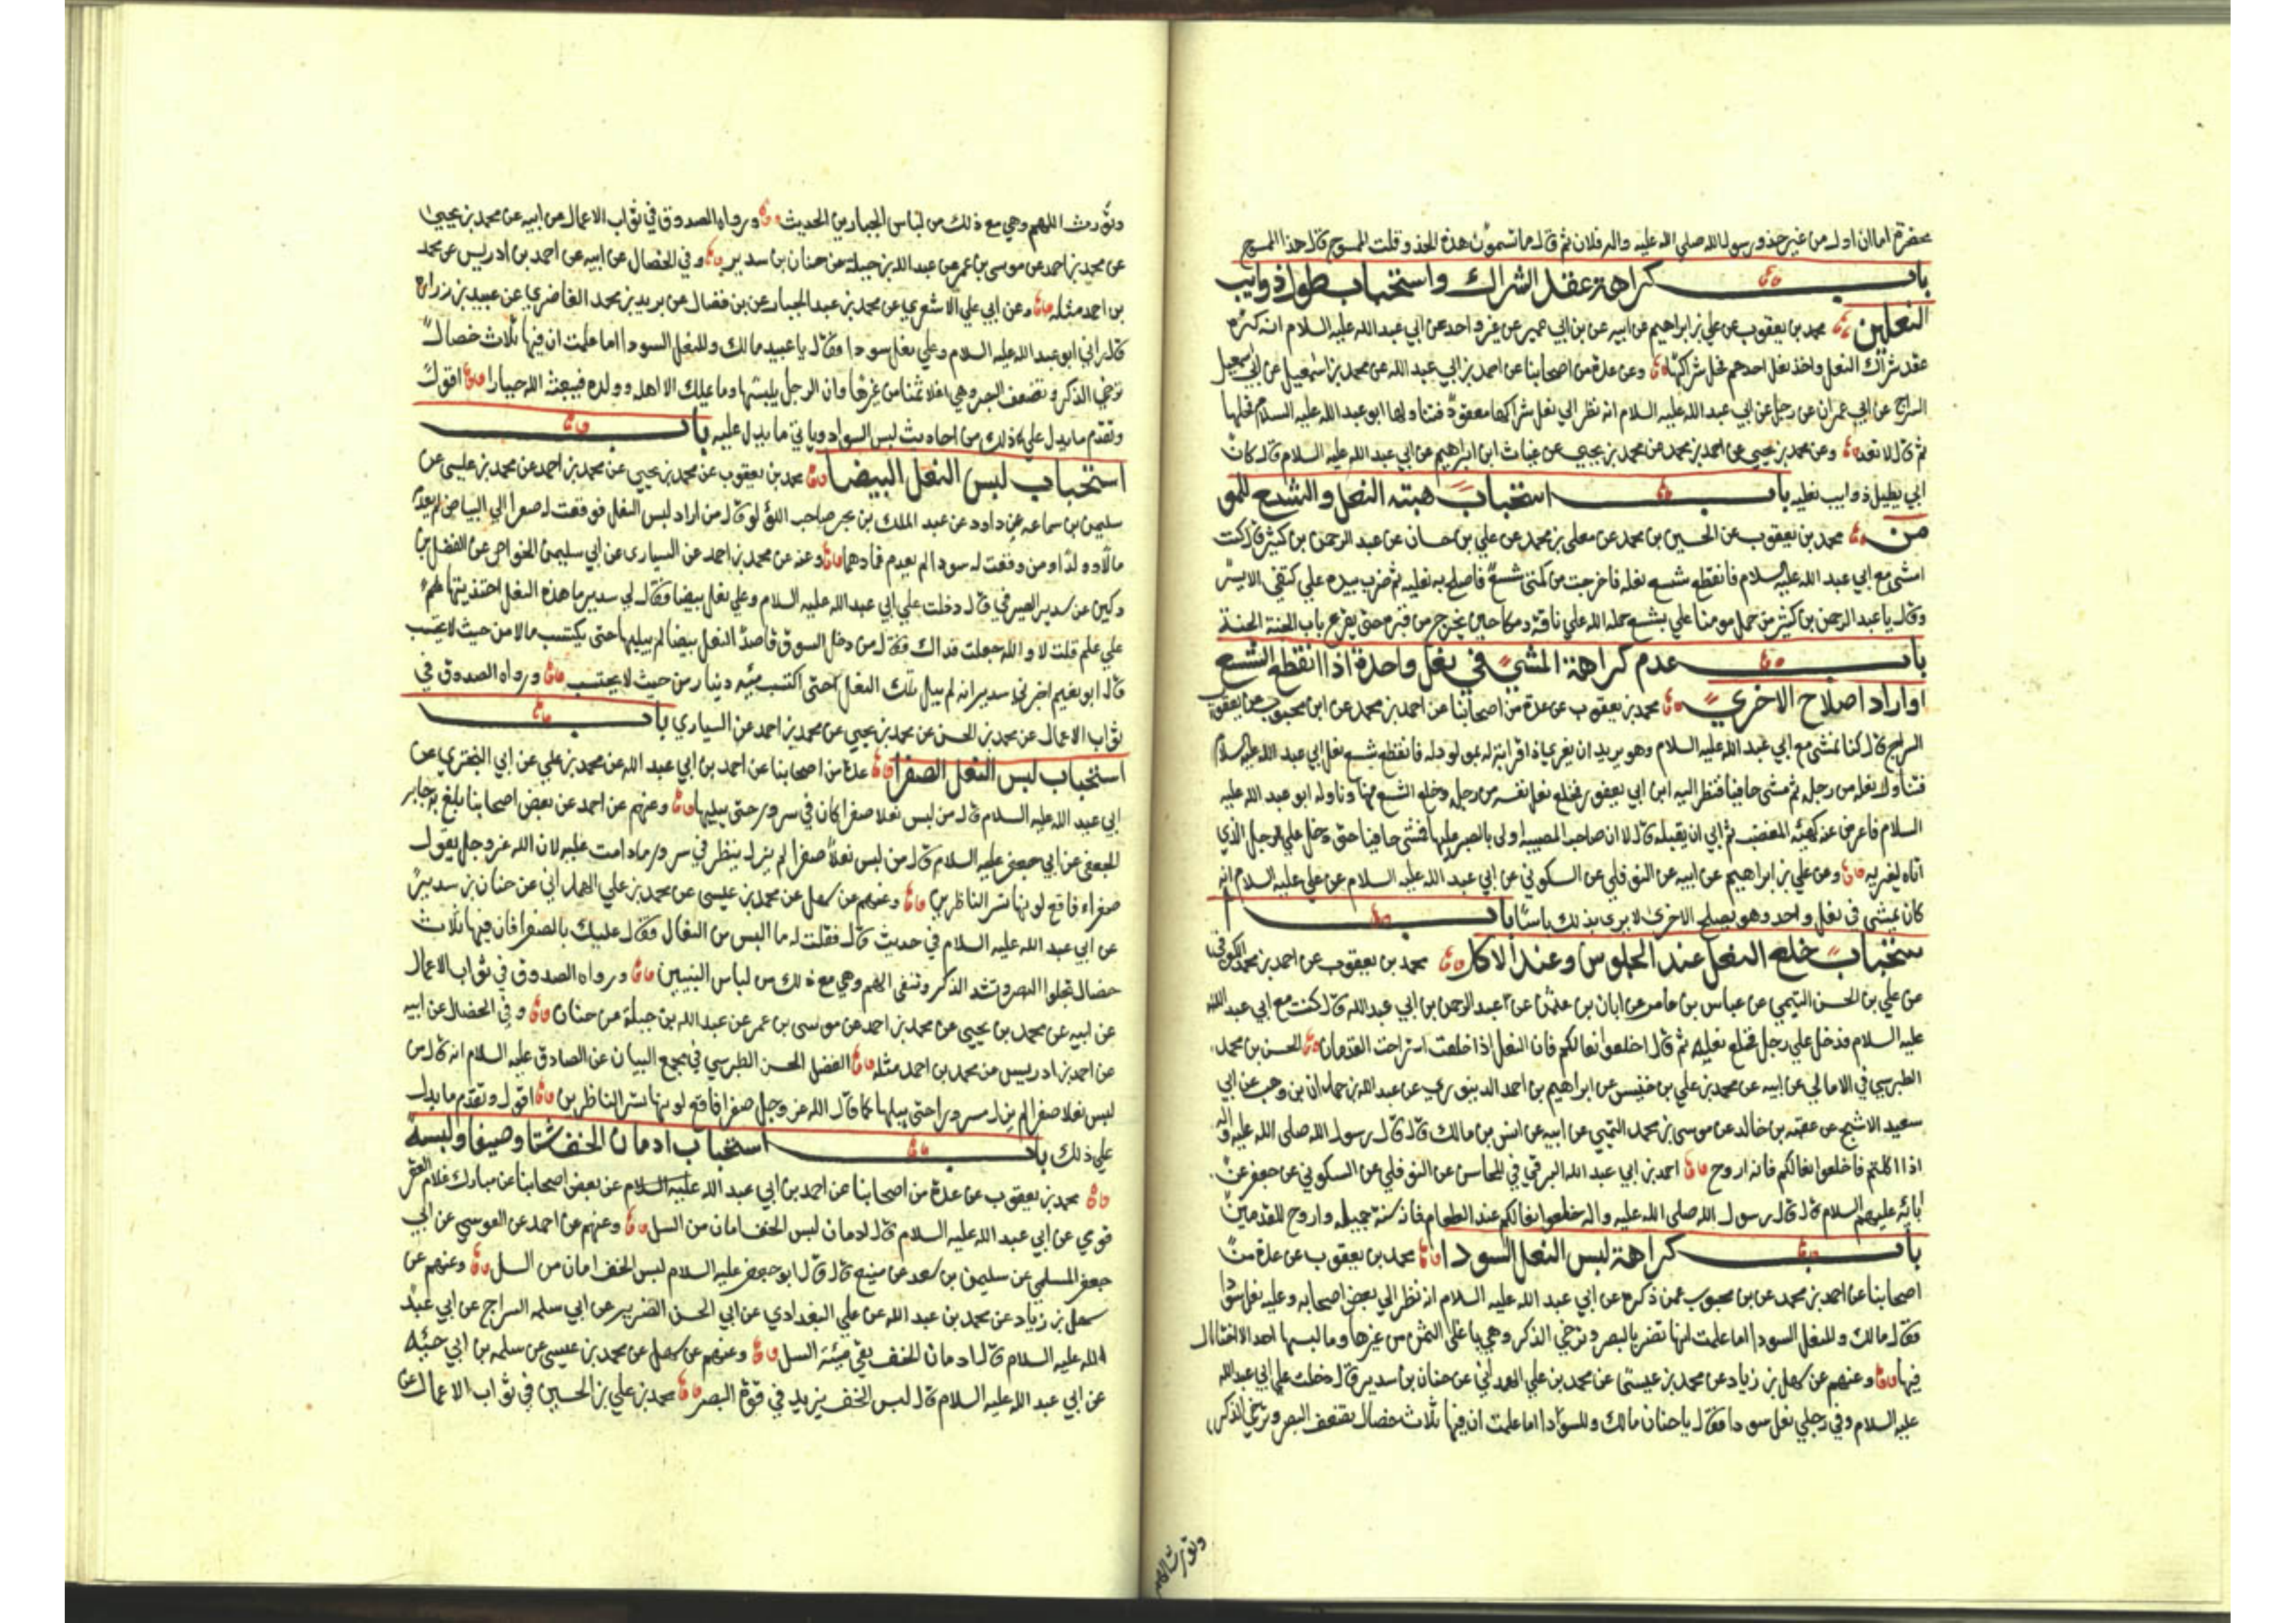 بحضرة اما ان اول من غير حذو رسول الله صلى الله عليه واله فلان ثم قال ما تسمون هذه الحذو قلت الممسوح قال هذا الممسوح
باب كراهة عقد الشراك واستحباب طول ذوايب
النعلين محمد بن يعقوب عن علي بن ابراهيم عن ابيه عن بن ابي عمير عن غير واحد عن ابي عبد الله عليه السلام انه كره
عقد شراك النعل واخذ نعل احدهم فحل شراكها وعن عدة من اصحابنا عن احمد بن ابي عبد الله عن محمد بن اسمعيل عن ابي اسمعيل
السراج عن ابي عمران عن رجل عن ابي عبد الله عليه السلام انه نظر الي نعل شراكها معقودة فتناولها ابو عبد الله عليه السلام فحلها
ثم قال لا تعد وعن محمد بن يحيي عن احمد بن محمد عن محمد بن يحيي عن غياث ابن ابراهيم عن ابي عبد الله عليه السلام قال كان
ابي يطيل ذوايب نعليه باب استحباب هبته النعل والشسع للمو
من محمد بن يعقوب عن الحسين بن محمد عن معلي بن محمد عن علي بن حسان عن عبد الرحمن بن كثير قال كنت
امشي مع ابي عبد الله عليه السلام فانقطع شسع نعله فاخرجت من كمي شسعا فاصلح به نعليه ثم ضرب بيده علي كتفي الايسر
وقال يا عبد الرحمن بن كثير من حمل مومنا علي بشسع حمله الله علي ناقة دمكا حين يخرج من قبره حتى يقرع باب الجنة
باب عدم كراهة المشي في نعل واحدة اذا انقطع الشسع
او اراد اصلاح الاخري محمد بن يعقوب عن عدة من اصحابنا عن احمد بن محمد عن ابن محبوب عن يعقوب
السراج قال كنا نمشي مع ابي عبد الله عليه السلام وهو يريد ان يعزي ذا قرابة له بمولود له فانقطع شسع نعل ابي عبد الله عليه السلام
فتناول نعله من رجله ثم مشى حافيا فنظر اليه ابن ابي يعفور فخلع نعل نفسه من رجله وخلع الشسع منها وناوله ابو عبد الله عليه
السلام فاعرض عنه كهيئة المغضب ثم ابي ان يقبله قال لا ان صاحب المصيبة اولى بالصبر عليها فمشى حافيا حتى دخل علي الرجل الذي
اتاه ليعزيه وعن علي بن ابراهيم عن ابيه عن النوفلي عن السكوني عن ابي عبد الله عليه السلام عن علي عليه السلام انه
كان يمشي في نعل واحد وهو يصلح الاخرى لا يرى بذلك باسا باب
ستحباب خلع النعل عند الجلوس وعند الاكل محمد بن يعقوب عن احمد بن محمد الكوفي
عن علي بن الحسن التيمي عن عباس بن عامر عن ابان بن عثمن عن عبد الرحمن بن ابي عبد الله قال كنت مع ابي عبد الله
عليه السلام فدخل علي رجل فخلع نعليه ثم قال اخلعوا نعالكم فان النعل اذا خلعت استراحت القدمان الحسن بن محمد
الطبرسي في الامالي عن ابيه عن محمد بن علي بن خنيس عن ابراهيم بن احمد الدينوري عن عبد الله بن حمدان بن وهب عن ابي
سعيد الاشج عن عقبة بن خالد عن موسى بن محمد التيمي عن ابيه عن انس بن مالك قال قال رسول الله صلى الله عليه واله
اذا اكلتم فاخلعوا نعالكم فانه اروح احمد بن ابي عبد الله البرقي في المحاسن عن النوفلي عن السكوني عن جعفر عن
ابائه عليهم السلام قال قال رسول الله صلى الله عليه واله خلعوا نعالكم عند الطعام فانه سنة جميله واروح للقدمين
باب كراهة لبس النعل السودا محمد بن يعقوب عن عدة من
اصحابنا عن احمد بن محمد عن بن محبوب عمن ذكره عن ابي عبد الله عليه السلام انه نظر الي بعض اصحابه وعليه نعل سودا
فقال مالك وللنعل السودا اما علمت انها تضر بالبصر وترخي الذكر وهي باغلى الثمن من غيرها وما لبسها احد الا اختال
فيها وعنهم عن سهل بن زياد عن محمد بن عيسى عن محمد بن علي الهمداني عن حنان بن سدير قال دخلت علي ابي عبد الله
عليه السلام وفي رجلي نعل سودا فقال يا حنان مالك وللسودا اما علمت ان فيها ثلاث خصال تضعف البصر وترخي الذكر
وتورث الهم
وتورث اللهم وهي مع ذلك من لباس الجبارين الحديث ورواه الصدوق في ثواب الاعمال عن ابيه عن محمد بن يحيى
عن محمد بن احمد عن موسى بن عمر عن عبد الله بن جبلة عن حنان بن سدير وفي الخصال عن ابيه عن احمد بن ادريس عن محمد
بن احمد مثله وعن ابي علي الاشعري عن محمد بن عبد الجبار عن بن فضال عن بريد بن محمد الغاضري عن عبيد بن زرارة
قال راني ابو عبد الله عليه السلام وعلي نعل سودا فقال يا عبيد مالك وللنعل السودا اما علمت ان فيها ثلاث خصال
ترخي الذكر وتضعف البصر وهي اغلا ثمنا من غيرها وان الرجل يلبسها وما يملك الا اهله وولده فيبعثه الله جبارا اقول
وتقدم ما يدل علي ذلك من احاديث لبس السواد وياتي ما يدل عليه باب
استحباب لبس النعل البيضا محمد بن يعقوب عن محمد بن يحيي عن محمد بن احمد عن محمد بن عيسى عن
سليمن بن سماعه عن داود عن عبد الملك بن بحر صاحب اللؤلو قال من اراد لبس النعل فوقعت له صفرا الي البياض لم يعدم
مالا وولدا ومن وقعت له سودا لم يعدم غما وهما وعنه عن محمد بن احمد عن السياري عن ابي سليمن الخواص عن الفضل بن
دكين عن سدير الصيرفي قال دخلت علي ابي عبد الله عليه السلام وعلي نعل بيضا فقال لي سدير ما هذه النعل احتذيتها علي
علي علم قلت لا والله جعلت فداك فقال من دخل السوق قاصدا لنعل بيضا لم يبليها حتى يكتسب مالا من حيث لا يحتسب
قال ابو نعيم اخبرني سدير انه لم يبل تلك النعل حتى اكتسب مئة دينار من حيث لا يحتسب ورواه الصدوق في
ثواب الاعمال عن محمد بن الحسن عن محمد بن يحيي عن محمد بن احمد عن السياري باب
استحباب لبس النعل الصفرا عدة من اصحابنا عن احمد بن ابي عبد الله عن محمد بن علي عن ابي البختري عن
ابي عبد الله عليه السلام قال من لبس نعلا صفرا كان في سرور حتى يبليها وعنهم عن احمد عن بعض اصحابنا بلغ به جابر
الجعفي عن ابي جعفر عليه السلام قال من لبس نعلا صفرا لم يزل ينظر في سرور ما دامت عليه لان الله عز وجل يقول
صفراء فاقع لونها تسر الناظرين وعنهم عن سهل عن محمد بن عيسى عن محمد بن علي الهمداني عن حنان بن سدير
عن ابي عبد الله عليه السلام في حديث قال فقلت له ما البس من النعال فقال عليك بالصفرا فان فيها ثلاث
خصال تجلوا البصر وتشد الذكر وتنفى الهم وهي مع ذلك من لباس النبيين ورواه الصدوق في ثواب الاعمال
عن ابيه عن محمد بن يحيى عن محمد بن احمد عن موسى بن عمر عن عبد الله بن جبلة عن حنان وفي الخصال عن ابيه
عن احمد بن ادريس عن محمد بن احمد مثله الفضل الحسن الطبرسي في مجمع البيان عن الصادق عليه السلام انه قال من
لبس نعلا صفرا لم يزل مسرورا حتى يبلها كما قال الله عز وجل صفرا فاقع لونها تسر الناظرين اقول وتقدم ما يدل
علي ذلك باب استحباب ادمان الخف شتا وصيفا ولبسه
محمد بن يعقوب عن عدة من اصحابنا عن احمد بن ابي عبد الله عليه السلام عن بعض اصحابنا عن مبارك غلام العقر
قوفي عن ابي عبد الله عليه السلام قال ادمان لبس الخف امان من السل وعنهم عن احمد عن العوسي عن ابي
جعفر المسلمي عن سليمن بن سعد عن منيع قال قال ابو جعفر عليه السلام لبس الخف امان من السل وعنهم عن
سهل بن زياد عن محمد بن عبد الله عن علي البغدادي عن ابي الحسن الضرير عن ابي سلمه السراج عن ابي عبد
الله عليه السلام قال ادمان الخف يقي ميتة السل وعنهم عن سهل عن محمد بن عيسى عن سلمه بن ابي حبه
عن ابي عبد الله عليه السلام قال لبس الخف يزيد في قوة البصر محمد بن علي بن الحسين في ثواب الاعمال عن